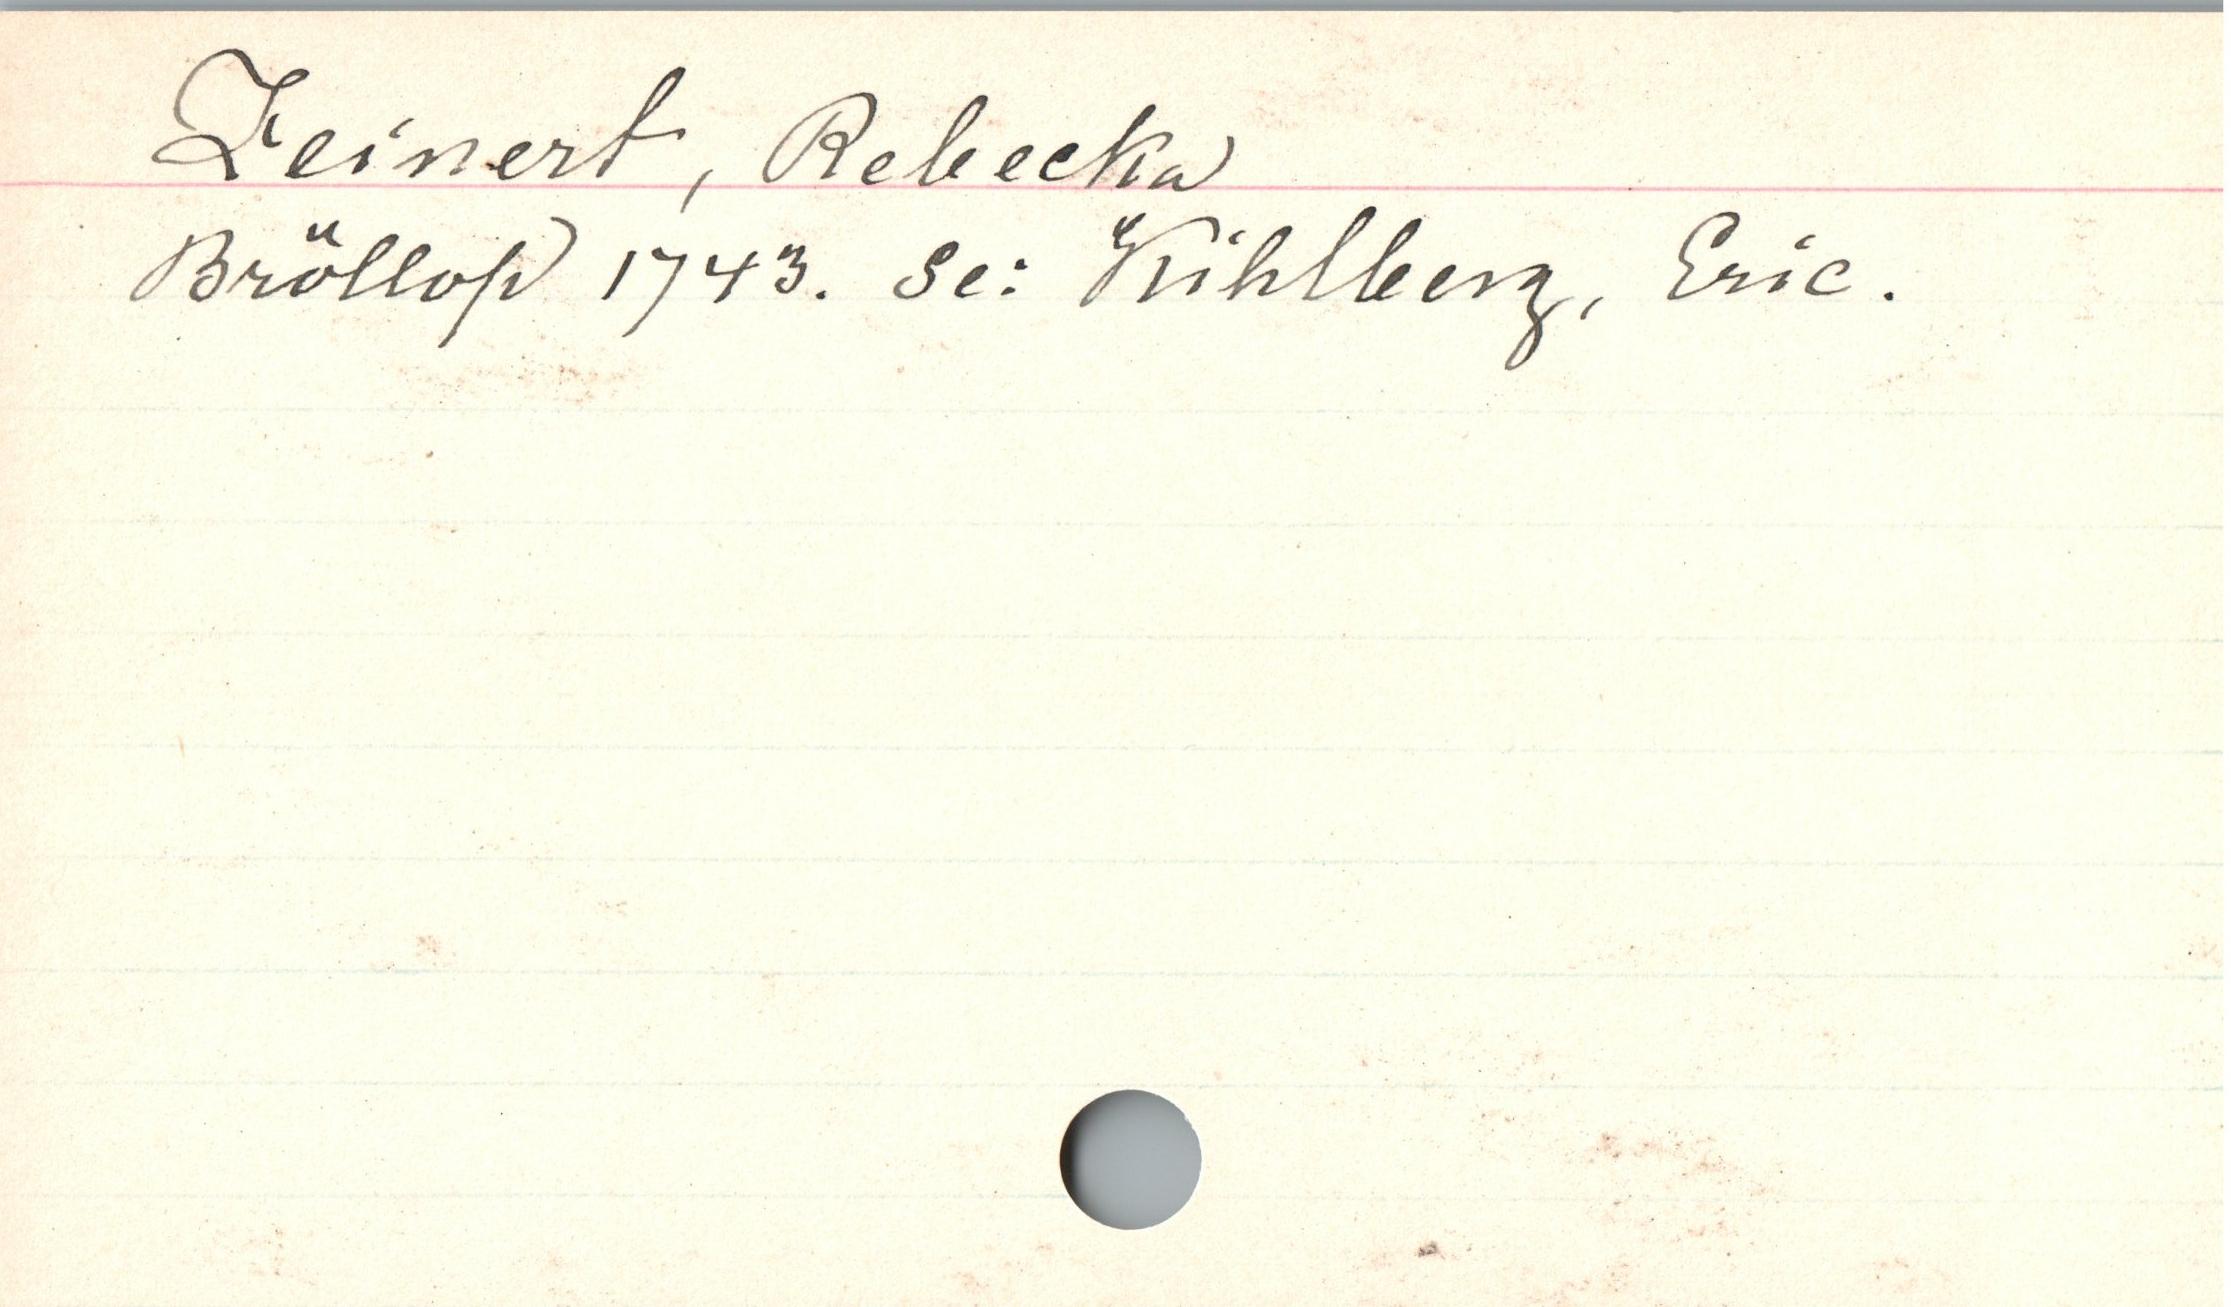 Zeinert, Rebecka
Bröllop 1743. Se: Kihlberg, Eric.